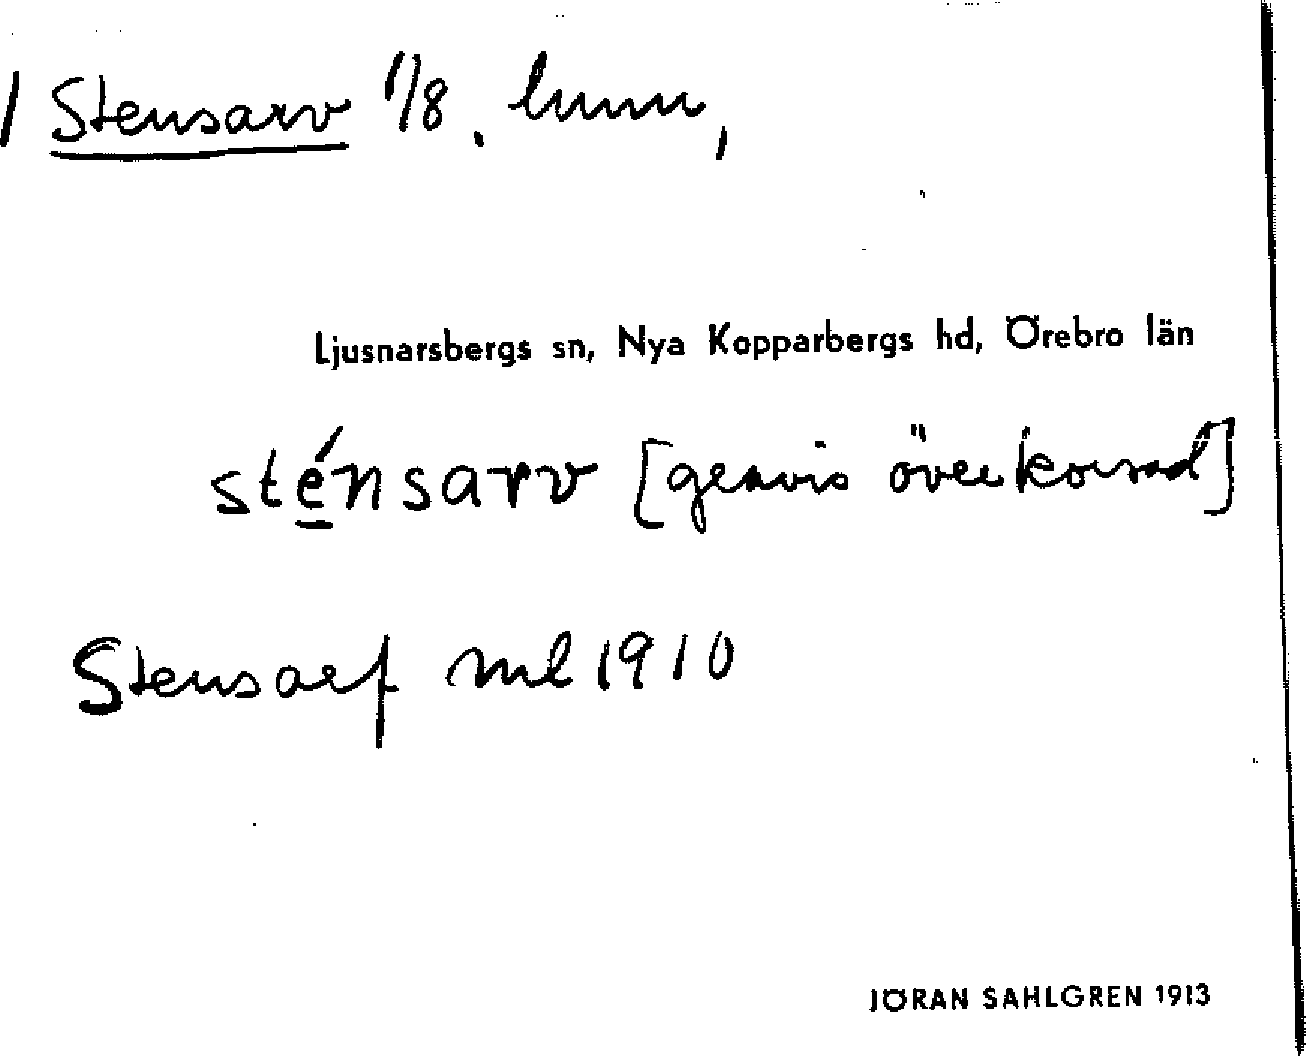 / Stensarv 1/8. hmn,
Ljusnarsbergs sn, Nya Kopparbergs hd, Örebro län
sténsarv [genuis överkorsad]
Stensarf ml 1910
JÖRAN SAHLGREN 1913